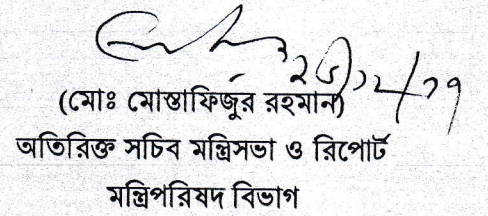 (মোঃ মোস্তাফিজুর রহমান)
অতিরিক্ত সচিব মন্ত্রিসভা ও রিপোর্ট
মন্ত্রিপরিষদ বিভাগ